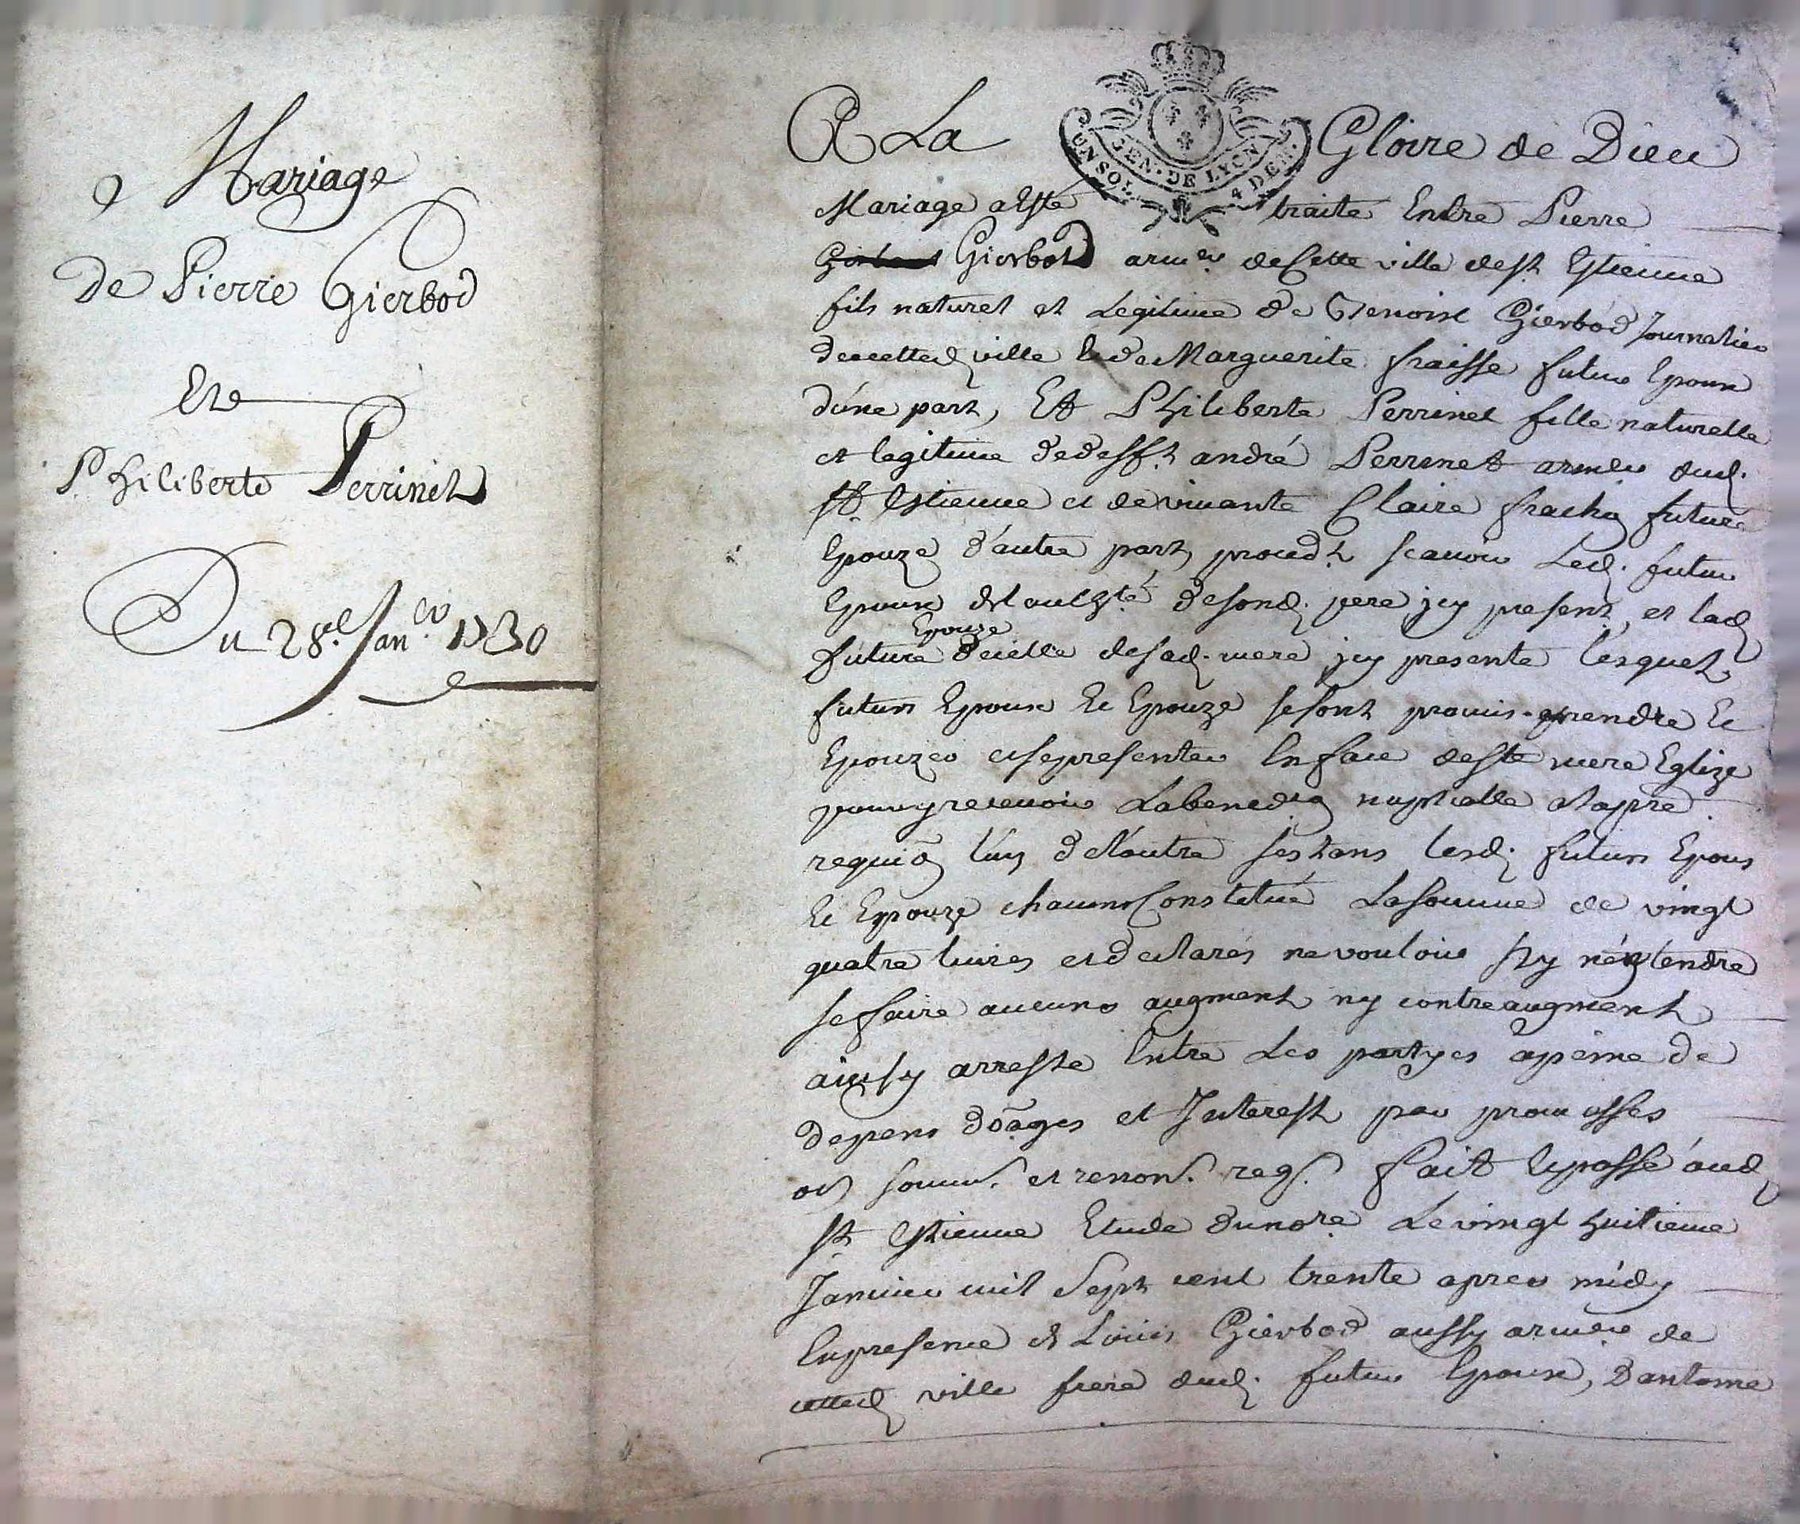 Mariage
De Pierre Gierbod
Et
Philiberte Perrinet
Du 28e. Janer. 1730
A La Gloire de Dieu
GEN. DE LYON
UN SOL 4 DEN.
Mariage a Esté traité Entre Pierre
Gierbod armer. de Cette ville de st Estienne
fils naturel et Legitime de Benoist Gierbod Journalier
de cetted. ville Et de Marguerite fraisse futur Epoux
d'une part, Et Philiberte Perrinet fille naturelle
et legitime de defft. andré Perrinet armeur dud.
st. Estienne et de vivante Claire frachon future
Epouze d'autre part, procedt. scavoir Led. futur
Epoux de l'authté. de sond. pere jcy present, et lad.
future Epouze de celle de sad. mere jcy presente lesquels
futurs Epoux Et Epouze se sont promis prendre Et
Epouzer et se presenter En face de ste mere Eglize
pour y recevoir La benedon. nuptialle a la pre.
requion. l'un de l'autre sestans lesd. futurs Epoux
Et Epouze chacuns Constitué La somme de vingt
quatre livres et declarés ne vouloir ny n'entendre
se faire aucuns augment ny contreaugment
ainsy arresté Entre Les partyes a peine de
depens doages et Interest par promesses
obn soum. et renon. regs. fait Et passé aud.
st Estienne Etude du nore. Le vingt huitieme
Janvier mil Sept cent trente apres midy
En presence de Louis Gierbod aussy armeur de
cetted. ville frere dud. futur Epoux, D'antoine